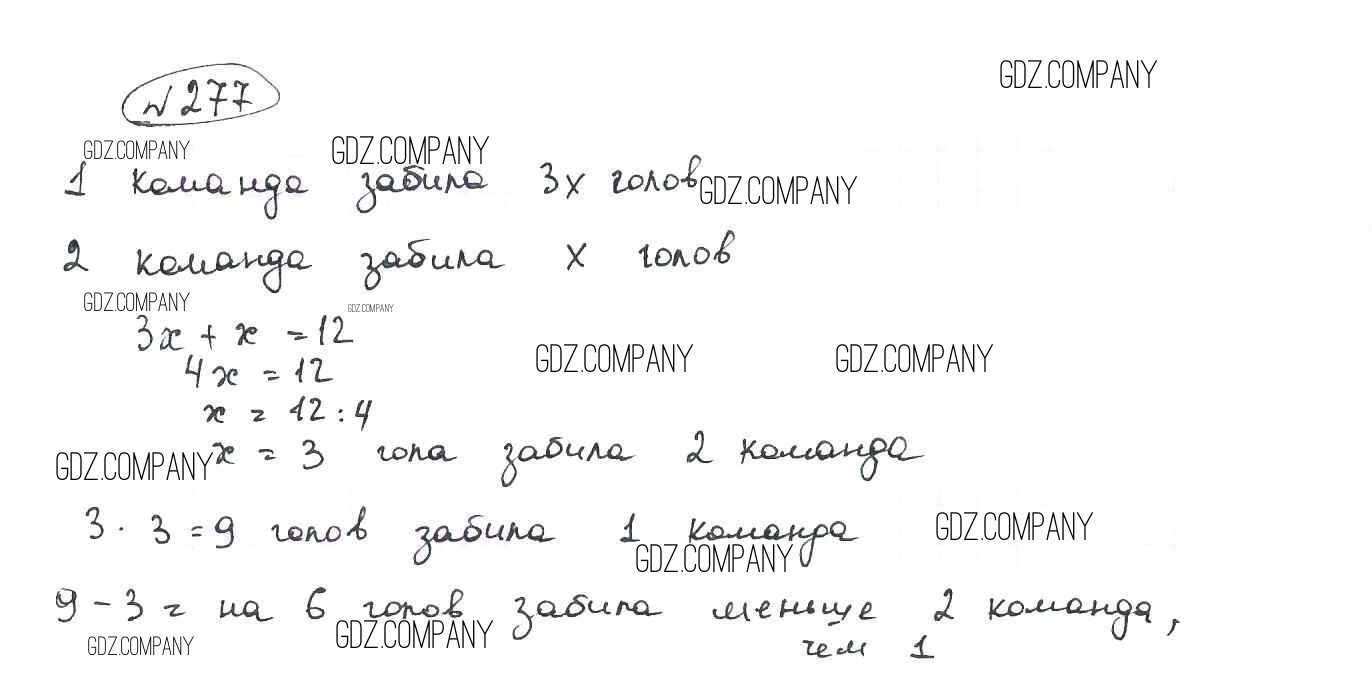 № 277
GDZ.COMPANY
GDZ.COMPANY
GDZ.COMPANY
1 команда забила 3х голов
GDZ.COMPANY
2 команда забила х голов
GDZ.COMPANY
GDZ.COMPANY
3х + х = 12
4х = 12
GDZ.COMPANY
GDZ.COMPANY
х = 12 : 4
х = 3 гола забила 2 команда
GDZ.COMPANY
3 · 3 = 9 голов забила 1 команда
GDZ.COMPANY
GDZ.COMPANY
9 - 3 = на 6 голов забила меньше 2 команда,
чем 1
GDZ.COMPANY
GDZ.COMPANY